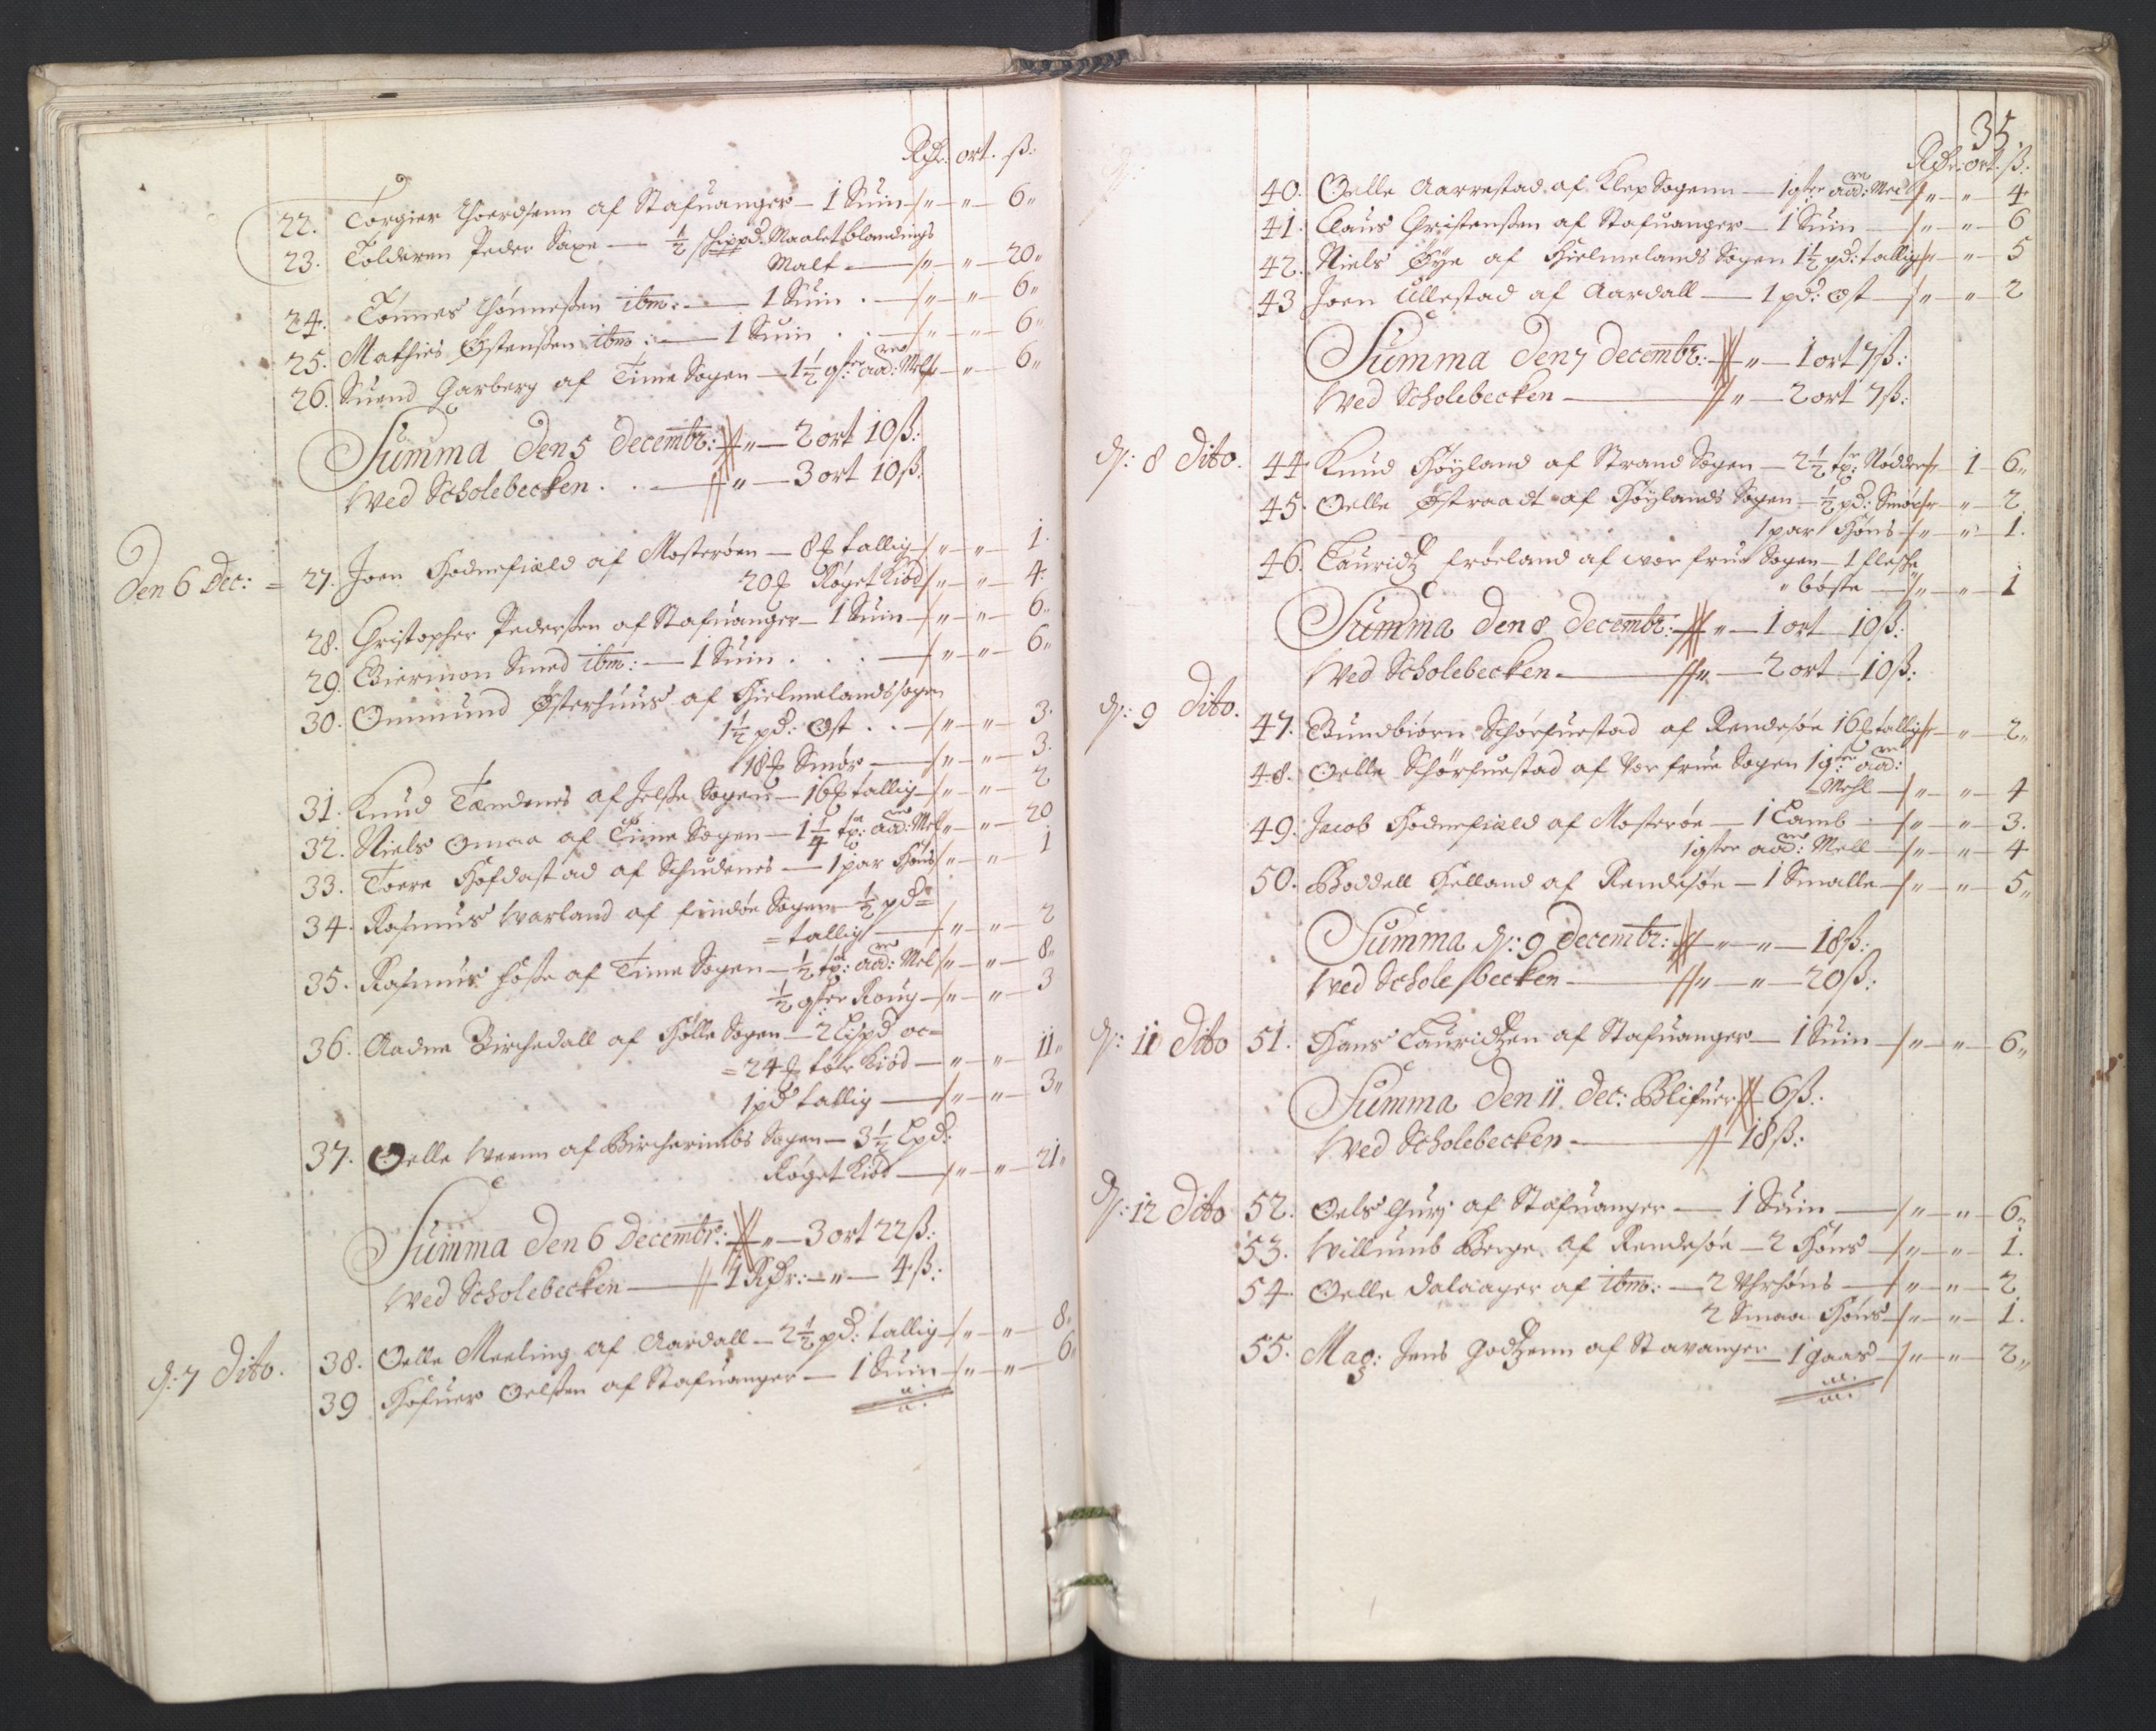 Rdr: ort. ß:
22. Torgier Thoerdsenn af Stafuanger — 1 Suin — " — " — 6"
23. Tolderen Peder Saxe — ½ schippd: Maalet blandings
Malt — " — " — 20"
24. Tönnes Thönneßen ibm: — 1 Suin . — " — " — 6"
25. Mathies Østenßen ibm: — 1 Suin . . — " — " — 6"
26. Suend Garberg af Time Sogen — 1½ gster aad: Mel — " — " — 6"
Summa Den 5 Decembr: — " — 2 ort 10 ß:
Wed Scholebecken . . — " — 3 ort 10 ß:
Den 6 Dec: = 27. Joen Hodnefiæld af Mosterøen — 8 ℔ tallig — " — " — 1.
20 ℔ Røget Kiød — " — " — 4.
28. Christopher Pederßen af Stafuanger — 1 Suin — " — " — 6"
29. Biermon Smed ibm: — 1 Suin . . . — " — " — 6"
30. Ommund Østerhuus af Hielmelands sogen
1½ pd: Ost . . — " — " — 3.
18 ℔ Smør — " — " — 3.
31. Knud Tændenes af Jelße Sogen — 16 ℔ tallig — " — " — 2
32. Niels Omaa af Time Sogen — 1¼ tp: aad: Mel — " — " — 20
33. Toere Hofdastad af Schudenes — 1 par Høns — " — " — 1
34. Rasmus Warland af Findøe Sogen ½ pd=
= tallig — " — " — 2
35. Rasmus Hoße af Time Sogen — ½ tp: aad: Mel — " — " — 8"
½ gster Roug — " — " — 3
36. Aadne Birchedall af Holle Sogen — 2 Lispd oc=
= 24 ℔ tør Kiød — " — " — 11"
1 pd tallig — " — " — 3"
37. Oelle Weenn af Bircherimbs Sogen — 3½ Lpd:
Røget Kiød — " — " — 21"
Summa Den 6 Decembr: — " — 3 ort 22 ß:
Wed Scholebecken — 1 Rdr: — " — 4 ß:
d: 7 Dito. 38. Oelle Meeling af Aardall — 2½ pd: tallig — " — " — 8"
39 Hofuer Oelßen af Stafuanger — 1 Suin — " — " — 6"
35.
Rdr: ort. ß:
40. Oelle Aarrestad af Klep Sogenn — 1 gster aad: Mell — " — " — 4
41. Claus Christenßen af Stafuanger — 1 Suin — " — " — 6
42. Niels Øye af Hielmelands Sogen 1½ pd: tallig — " — " — 5
43 Joen Ullestad af Aardall — 1 pd: Ost — " — " — 2
Summa Den 7 Decembr: — " — 1 ort 7 ß:
Wed Scholebecken — " — 2 ort 7 ß:
d: 8 Dito. 44 Knud Høyland af Strand Sogen — 2½ tp: Nødder — 1 — 6"
45. Oelle Østraadt af Høylands Sogen — ½ pd: Smør — " — 2
1 par Høns — " — " — 1.
46. Lauridz Frøeland af vor frue Sogen — 1 flesche
" böste — " — " — 1
Summa Den 8 Decembr: — " — 1 ort 10 ß:
Wed Scholebecken — " — 2 ort — 10 ß:
d: 9 Dito. 47. Bundbiørn Schørfuestad af Rendesøe 16 ℔ tallig — " — 2"
48. Oelle Schörfuestad af Vor frue Sogen 1 gster aad:
= Mehl — " — " — 4
49. Jacob Hodnefiæld af Mosterøe — 1 Lamb — " — " — 3.
1 gster aad: Mell — " — " — 4
50. Boddell Helland af Rendesøe — 1 Smalle — " — " — 5"
Summa d: 9 Decembr: — " — " — 18 ß:
Wed Scholebecken — " — " — 20 ß:
d: 11 Dito 51. Hans Lauridzen af Stafuanger — 1 Suin — " — " — 6"
Summa Den 11 Dec: Blifuer — 6 ß:
Wed Scholebecken — 18 ß:
d: 12 Dito 52. Oels Gurj af Stafuanger — 1 Suin — " — " — 6"
53. Willumb Berge af Rendesøe — 2 Høns — " — " — 1.
54 Oelle Dalaager af ibm: — 2 Uhrhøns — " — " — 2
2 Smaa Høns — " — " — 1.
55. Mag: Jens Godzenn af Stavanger — 1 gaas — " — " — 2"